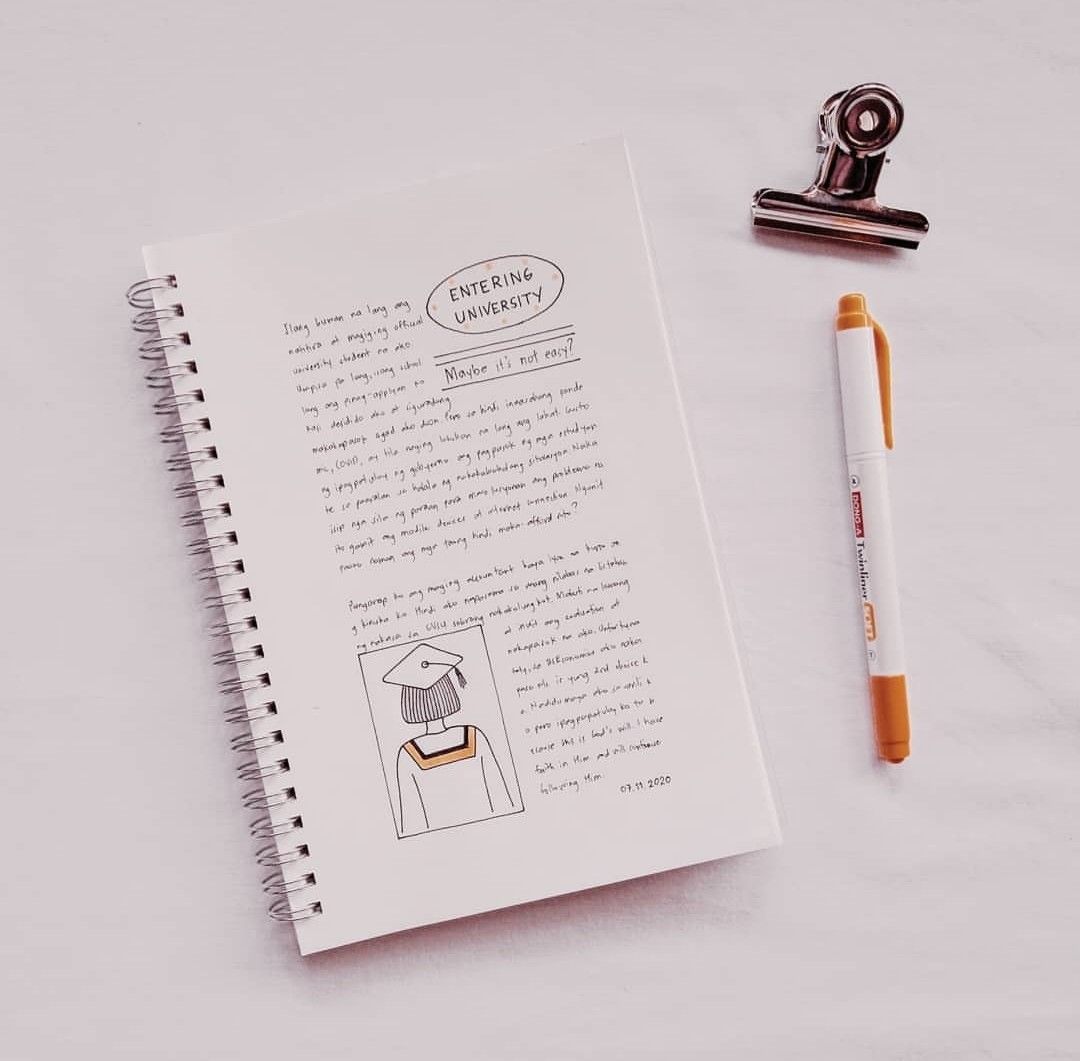 ENTERING
UNIVERSITY
Maybe it's not easy?
Ilang buwan na lang ang
natitira at magiging official
university student na ako.
Umpisa pa lang, isang school
lang ang pinag-applyan ko
kasi desidido ako at siguradong
makakapasok agad ako doon. Pero sa hindi inaasahang pande
mic, COVID, ay tila naging lahat. Gusto
ng ipagpatuloy ng gobyerno ang pagpasok ng mga estudyan
te sa paaralan sa kabila ng nakakabahalang sitwasyon. Naka
isip nga sila ng paraang para masolusyunan ang problema na
ito gamit ang mobile devices at internet connection. Ngunit
paano naman ang mga taong hindi maka-afford nito?
Pangarap ko ang maging accountant kaya iyon na kurso
g kinuha ko. Hindi ako napasama sa unang nilabas na listahan
ng nakapasa sa CVSU sobrang nakakalungkot. Mabuti na lamang
at inulit ang evaluation at
nakapasok na ako. Unfortuna
tely, sa ako naka
pasa which is yung 2nd choice k
o. Nadidismaya ako sa sarili k
o pero ipagpapatuloy ko to b
ecause this is God's will. I have
faith in Him and will continue
following Him.
07.11.2020
DONG-A
Twinliner
SOFT